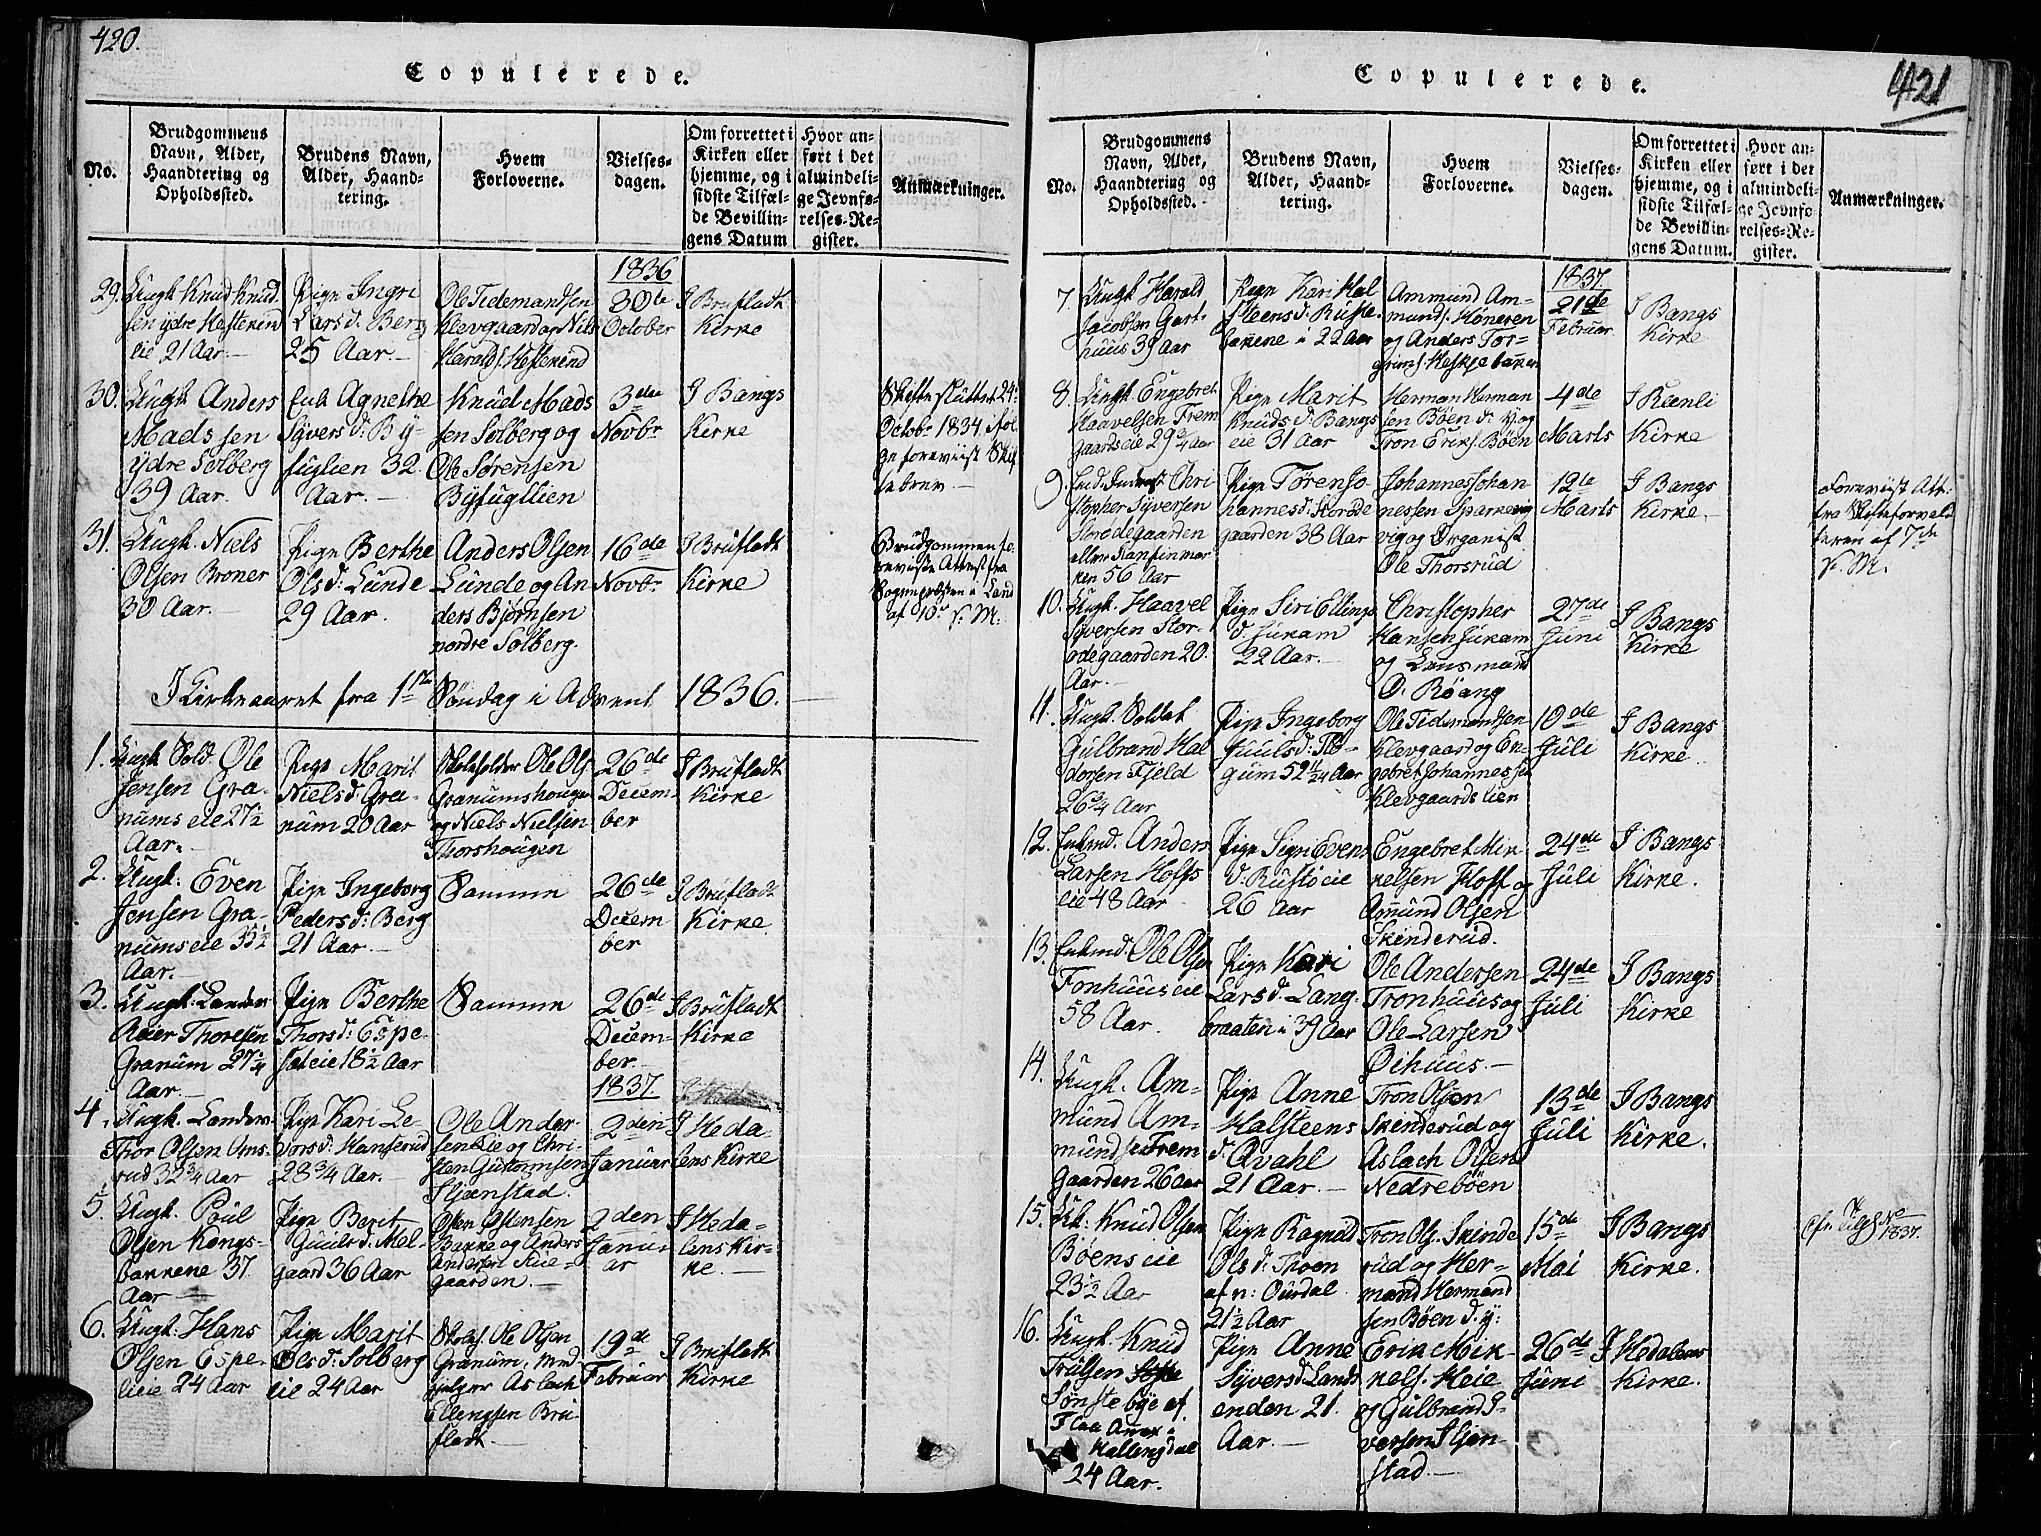 420.
Copulerede.
No.
Brudgommens
Navn, Alder,
Haandtering og
Opholdssted.
Brudens Navn,
Alder, Haand-
tering.
Hvem
Forloverne.
Vielses-
dagen.
Om forrettet i
Kirken eller
hjemme, og i
sidste Tilfæl-
de Bevillin-
gens Datum
Hvor an-
ført i det
almindeli-
ge Jevnfø-
relses-Re-
gister.
Anmærkninger.
1836
29. Ungk Knud Knud
sen ydre Hestekind
eie 21 Aar.
Pige Ingri
Larsd: Berg
25 Aar.
Ole Tidemandsen
Klevgaard og Niels
Harald s. Hestekind
30te
October
I Brufladt
Kirke
30. Ungk Anders
Madssen
ydre Solberg
39 Aar.
Enk Agnethe
Syversd: By-
fuglien 32.
Aar.
Knud Mads
sen Solberg og
Ole Sørensen
Byfugllien
3die
Novbr
I Bangs
Kirke
Skifte sluttet 24
Octobr 1834 iføl
ge foreviist Skif
tebrev
31. Ungk. Niels
Olsen Broner
30 Aar.
Pige Berthe
Olsd: Lunde
29 Aar.
Anders Olsen
Lunde og An
ders Bjørnsen
nordre Solberg.
16de
Novbr
I Brufladt
Kirke
Brudgommen fo
reviiste Attest fra
Sognepresten i Land
af 10de s. M.
I Kirkeaaret fra 1ste Søndag i Advent 1836.
1. Ungk Sold. Ole
Jensen Gra-
nums eie 27½
Aar.
Pige Marit
Nielsd: Gra-
num 20 Aar
Skoleholder Ole Ols
Granumshougen
og Niels Nielsen
Thorshougen
26de
Decem-
ber
I Brufladt
Kirke
2. Ungk: Even
Jensen Gra-
nums eie 35½
Aar.
Pige Ingeborg
Pedersd: Berg
21 Aar.
Samme
26de
Decem
ber
I Brufladt
Kirke
3. Ungk: Landev
Reier Thoresen
Granum 27¼
Aar.
Pige Berthe
Thorsd: Espe-
lieeie 18½ Aar
Samme
26de
Decem-
ber.
I Brufladt
Kirke
1837.
4. Ungk. Landev.
Thor Olsen Oms
rud 32¾ Aar
Pige Kari Le-
vorsd: Hanserud
28¾ Aar.
Ole Ander
sen Lie og Chri-
sten Guttormsen
Stjenstad.
2den
Januar
I Heda-
lens Kirke
5. Ungk. Poul
Olsen Kongs-
bakkene 37
Aar
Pige Berit
Guulsd: Mel-
gaard 36 Aar
Osten Ostensen
Bakke og Anders
Andersen Lie-
gaarden.
2den
Janu-
ar
I Heda-
lens Kir-
ke.
6. Ungk: Hans
Olsen Espe-
lieie 24 Aar
Pige Marit
Olsd: Solberg
eie 24 Aar
Skoleh. Ole Olsen
Granum, Med-
hjelper Aslach
Ellengsen Bru-
fladt
19de
Februar
I Brufladt
Kirke
421
Copulerede.
No.
Brudgommens
Navn, Alder,
Haandtering og
Opholdssted.
Brudens Navn,
Alder, Haand-
tering.
Hvem
Forloverne.
Vielses-
dagen.
Om forrettet i
Kirken eller
hjemme, og i
sidste Tilfæl-
de Bevillin-
gens Datum.
Hvor an-
ført i det
almindeli-
ge Jevnfø-
relses-Re-
gister.
Anmærkninger.
1837.
7. Ungk Harald
Jacobsen Gart-
huus 39 Aar
Pige Kari Hal
steensd: Ruste
bakkene i 22 Aar
Ammund Am-
munds. Høneren
og Anders Tor-
grims. Heskjebakken
21de
Februar
I Bangs
Kirke
8. Ungk Engebret
Haavelsen Frem
gaardseie 29¾ Aar
Pige Marit
Knudsd: Bangs
eie 31 Aar
Herman Herman
sen Bøen d: y. og
Tron Eriks. Bøen
4de
Marts
I Reenli
Kirke
9. Chri
stopher Syversen
Storødegaarden
eller Kantinmar
ken 56 Aar
Pige Tøren Jo
hannesd: Storøde
gaarden 38 Aar
Johannes Johan
nessen Sparkevig
vig og Organist
Ole Thorsrud
12te
Marts
I Bangs
Kirke.
Foreviist Att:
fra Skifteforval
teren af 7de
s. M.
10. Ungk. Haavel
Syversen Stor-
ødegaarden 20.
Aar.
Pige Siri Ellings
d. Juram
22 Aar.
Christopher
Hansen Juram
og Lensmand
O. Røang
27de
Juni
I Bangs
Kirke
11. Ungk. Soldat
Gulbrand Hal
dorsen Fjeld
26¾ Aar
Pige Ingeborg
Juulsd: Flø-
gum 52 11/24 Aar
Ole Tidemandsen
Klevgaard og En-
gebret Johannessen
Klevgaardslien
10de
Juli
I Bangs
Kirke
12. Enkmd. Anders
Larsen Hoffs
eie 48 Aar
Pige Sigri Evens
d: Rustøeie
26 Aar
Engebret Mik
kelsen Hoff og
Amund Olsen
Skinderud.
24de
Juli
I Bangs
Kirke.
13. Enkmd Ole Olsen
Fonhuuseie
58 Aar.
Pige Kari
Larsd: Lang-
braaten i 39 Aar
Ole Andersen
Tronhuus og
Ole Larsen
Øihuus.
24de
Juli
I Bangs
Kirke
14. Ungk. Am-
mund Am-
mundsen Frem
gaarden 26 aar
Pige Anne
Halsteens
d. Qvahl
21 Aar.
Tron Olsen
Skinderud og
Aslach Olsen
Nedrebøen
13de
Juli
I Bangs
Kirke.
15. Uk: Knud Olsen
Bøenseie
23½ Aar
Pige Ragnild
Olsd: Thoen
af n: Ourdal
21½ Aar
Tron Ols. Skinde
rud og Her-
mand Hermand
sen Bøen d. y:
15de
Mai
I Bangs
Kirke.
1837.
16. Ungk. Knud
Trulsen
Sønstebye af
Flaa Annex i
Hallingdal
24 Aar.
Pige Anne
Syversd Lands
enden 21.
Aar.
Erik Mik-
kels. Heie
og Gulbrand I-
versen Stjen-
stad.
26de
Juni
I Hedalens
Kirke.